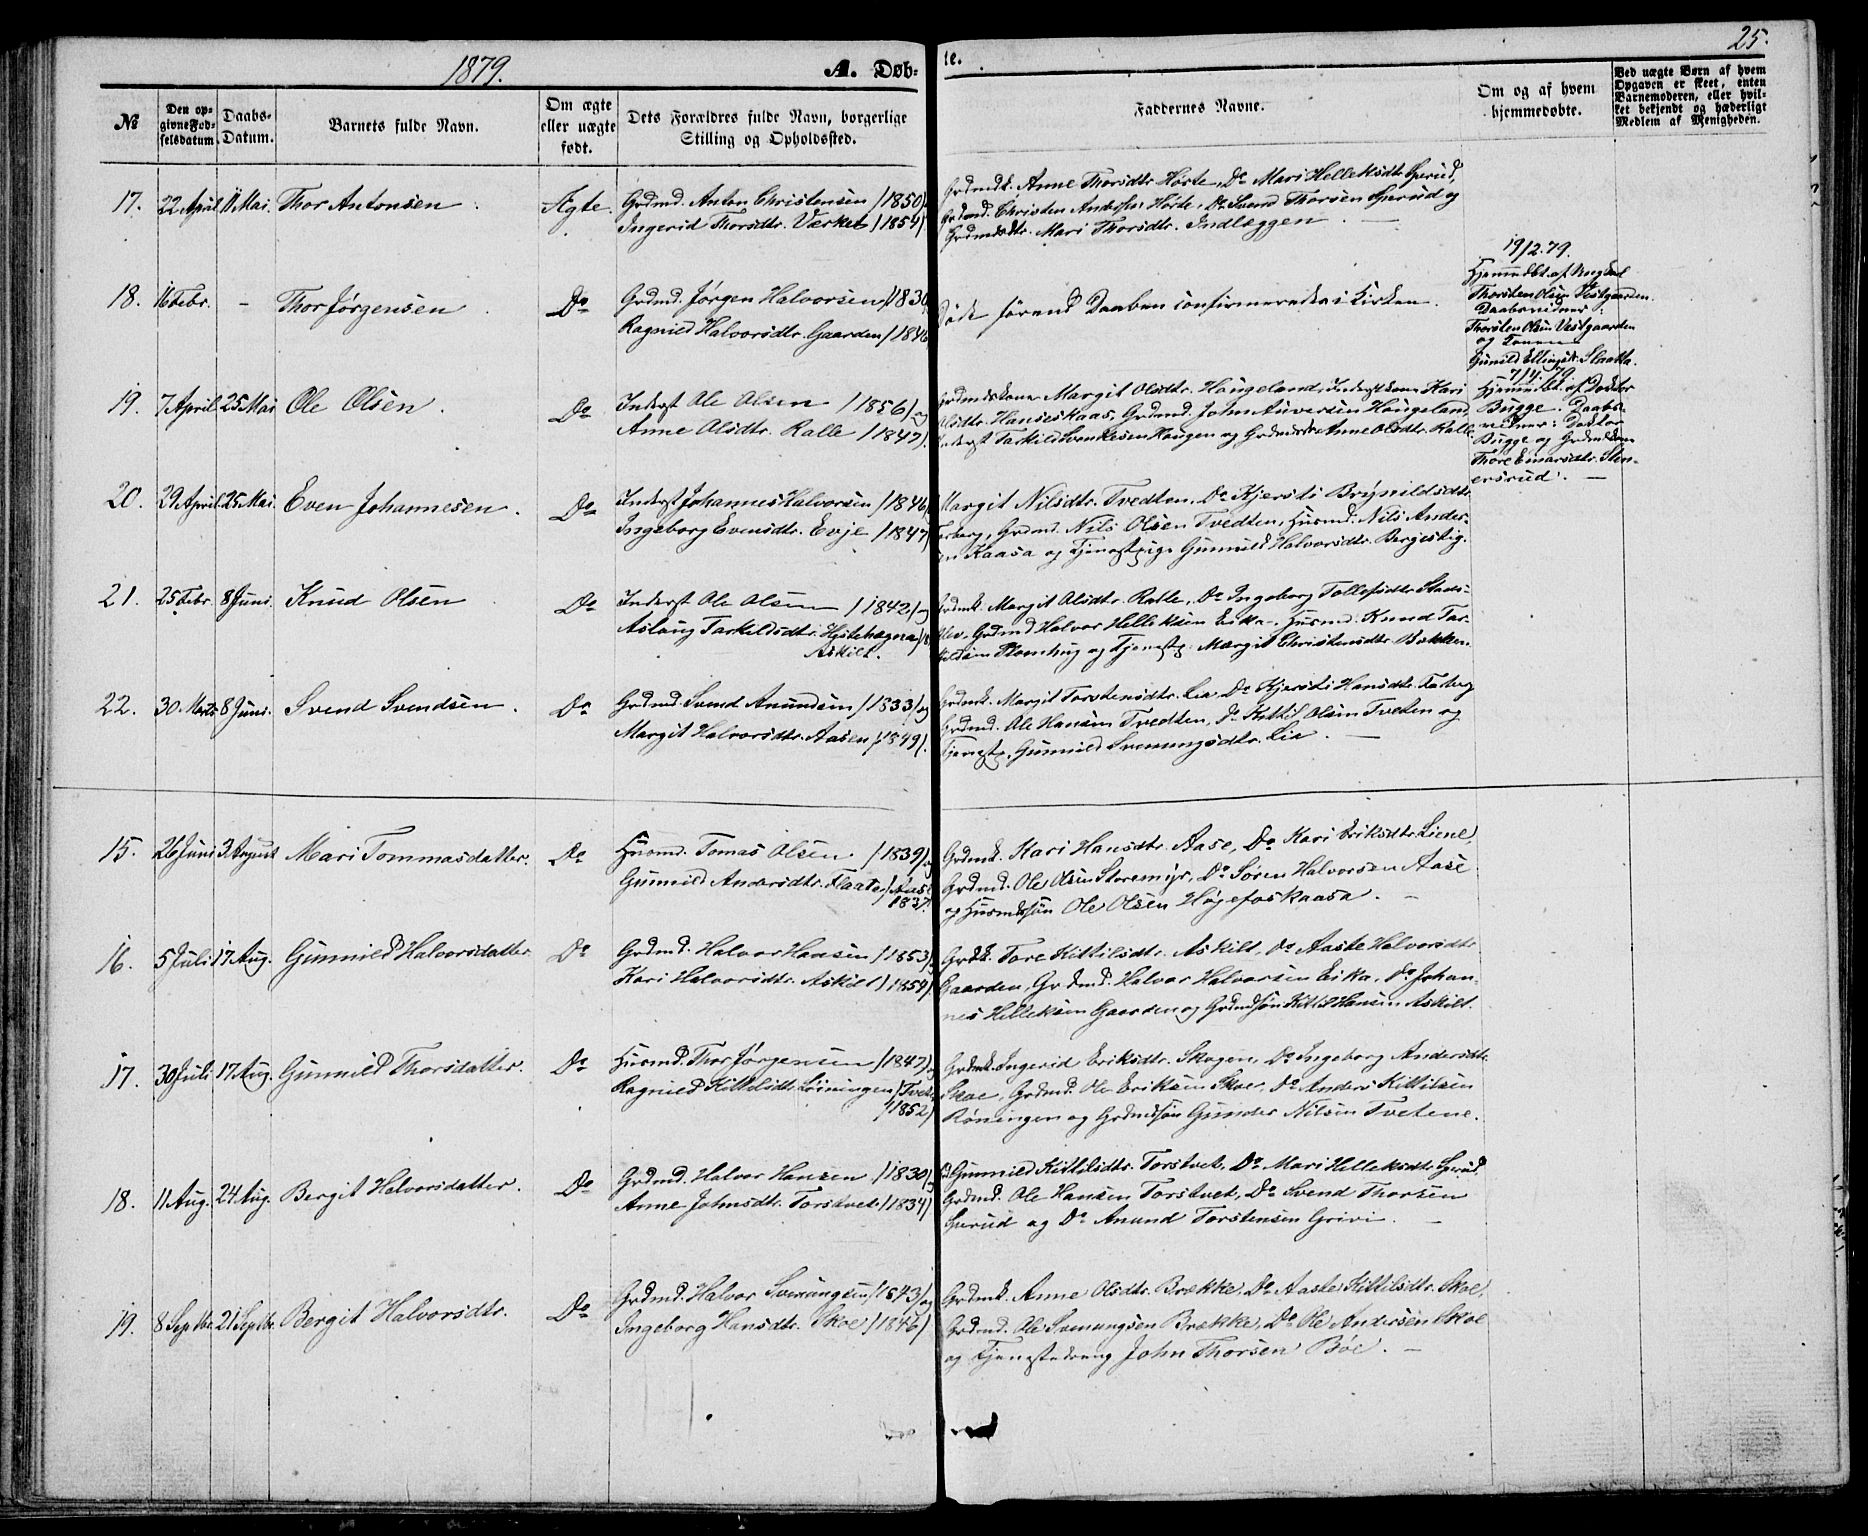 1879.
A. Døb-
te.
25.
№
Den op-
givne Fød-
selsdatum.
Daabs-
Datum.
Barnets fulde Navn.
Om ægte
eller uægte
født.
Dets Forældres fulde Navn, borgerlige
Stilling og Opholdssted.
Faddernes Navne.
Om og af hvem
hjemmedøbte.
Ved uægte Børn af hvem
Opgaven er skeet, enten
Barnemoderen, eller hvil-
ket bekjendt og hæderligt
Medlem af Menigheden.
17. 22 April 11 Mai. Thor Antonsen Ægte.
Grdmd. Anton Christensen /1850/
Ingerid Thorsdtr. Værket /1854/
Grdmdk. Anne Thorsdtr. Hörte, Do Mari Helleksdtr.
Grdmd. Christen Andersen Hörte, Do Svend Thorsen og
Grdmdsdtr. Mari Thorsdtr. Indlæggen
18. 16 Febr. - Thor Jørgensen Do
Grdmd. Jørgen Halvorsen /1830
Ragnild Halvorsdtr. Gaarden /1846
Døde förend Daaben confirmeredes i Kirken.
19/2.79.
Hjemmdbt. af Ungkarl
Thorsten Olsen Vestgaarden.
Daabsvidner:
Thorsten Olsen Vestgaarden
og Konen
Gunild Ellingsdr. Slaatta.
19. 7 April 25 Mai Ole Olsen. Do
Inderst Ole Olsen /1856/ og
Anne Olsdtr. Ralle /1847/.
Grdmdskone Margit Olsdtr. Haugeland, Inderstkone Kari
Olsdtr. Hanseskaas, Grdmd. John Auversen Haugeland,
Inderst Tarkild Svenkesen Haugen og Grdmdsdtr. Anne Olsdtr. Ralle
7/4.79.
Hjemmdbt. af Doktor
Bugge. Daabs-
vidner: Doktor
Bugge og Grdmdskone
Thore Einarsdtr. Sten-
ersrud.
20. 29 April 25 Mai. Even Johannesen. Do
Inderst Johannes Halvorsen /1846/
Ingeborg Evensdtr. Evje /1847/
Margit Nilsdtr. Tvedten, Do Kjersti Brynildsdtr.
Grdmd. Nils Olsen Tvedten, Husmd. Nils Anders-
en Kaasa og Tjenestpige Gunnild Halvorsdtr. Bergestig.
21. 25 Febr. 8 Juni. Knud Olsen Do
Inderst Ole Olsen /1842/ og
Aslaug Tarkeldsdtr. Hestehagna
Askilt.
Grdmdk. Margit Olsdtr. Ralle, Do Ingeborg Tollefsdtr. Stads-
Grdmd Halvor Helleksen Eika, Husmd. Knud Tar-
keldsen og Tjenestp. Margit Christensdtr. Bakken.
22. 30 Marts 8 Juni. Svend Svendsen. Do
Grdmd. Svend Anundsen /1833/ og
Margit Halvorsdtr. Aasen /1849/.
Grdmdk. Margit Torstensdtr. Lia, Do Kjersti Hansdtr.
Grdmd. Ole Hansen Tvedten, Do Kittil Olsen Tveten og
Tjenestp. Gunnild Svenungsdtr. Lia.
15. 26 Juni 3 August Mari Tommasdatter. Do
Husmd. Tomas Olsen /1839/ og
Gunnild Andersdtr. Flaata /Aase
/1837.
Grdmdk. Kari Hansdtr. Aase, Do Kari Eriksdtr. Liene,
Grdmd. Ole Olsen Storemyr, Do Søren Halvorsen Aase
og Husmdssøn Ole Olsen Högefoskaasa.
16. 5 Juli 17 Aug. Gunnild Halvorsdatter Do
Grdmd. Halvor Hansen /1853/
Kari Halvorsdtr. Askilt /1854/
Grdk. Tore Kittilsdtr. Askilt, Do Aaste Halvorsdtr.
Gaarden, Grdmd. Halvor Halvorsen Eika, Do Johan-
nes Helleksen Gaarden og Grdmdsøn Kittil Hansen Askilt.
17. 30 Juli 17 Aug. Gunnild Thorsdatter. Do
Husmd. Thor Jørgensen /1847/
Ragnild Kittilsdtr. /Tvet
/1852/
Grdmdk. Ingerid Eriksdtr. Skogen, Do Ingeborg Andersdtr.
Skoe, Grdmd. Ole Eriksen Skoe, Do Anders Kittilsen
Röningen og Grdmdsøn Gunder Nilsen Tvetene.
18. 11 Aug. 24 Aug. Bergit Halvorsdatter. Do
Grdmd. Halvor Hansen /1830/
Anne Johnsdtr. Torstvet /1834/
Gunnild Kittilsdtr. Torstvet, Do Mari Helleksdtr.
Grdmd. Ole Hansen Torstvet, Do Svend Thorsen
og Do Anund Torstensen Grivi.
19. 8 Septbr. 21 Septbr. Bergit Halvorsdtr. Do
Grdmd. Halvor Svenungsen /1843/ og
Ingeborg Hansdtr. Skoe /1846/
Grdmdk. Anne Olsdtr. Brække, Do Aaste Kittilsdtr. Skoe,
Grdmd. Ole Svenungsen Brække, Do Ole Andersen Skoe
og Tjenestedreng John Thorsen Böe.